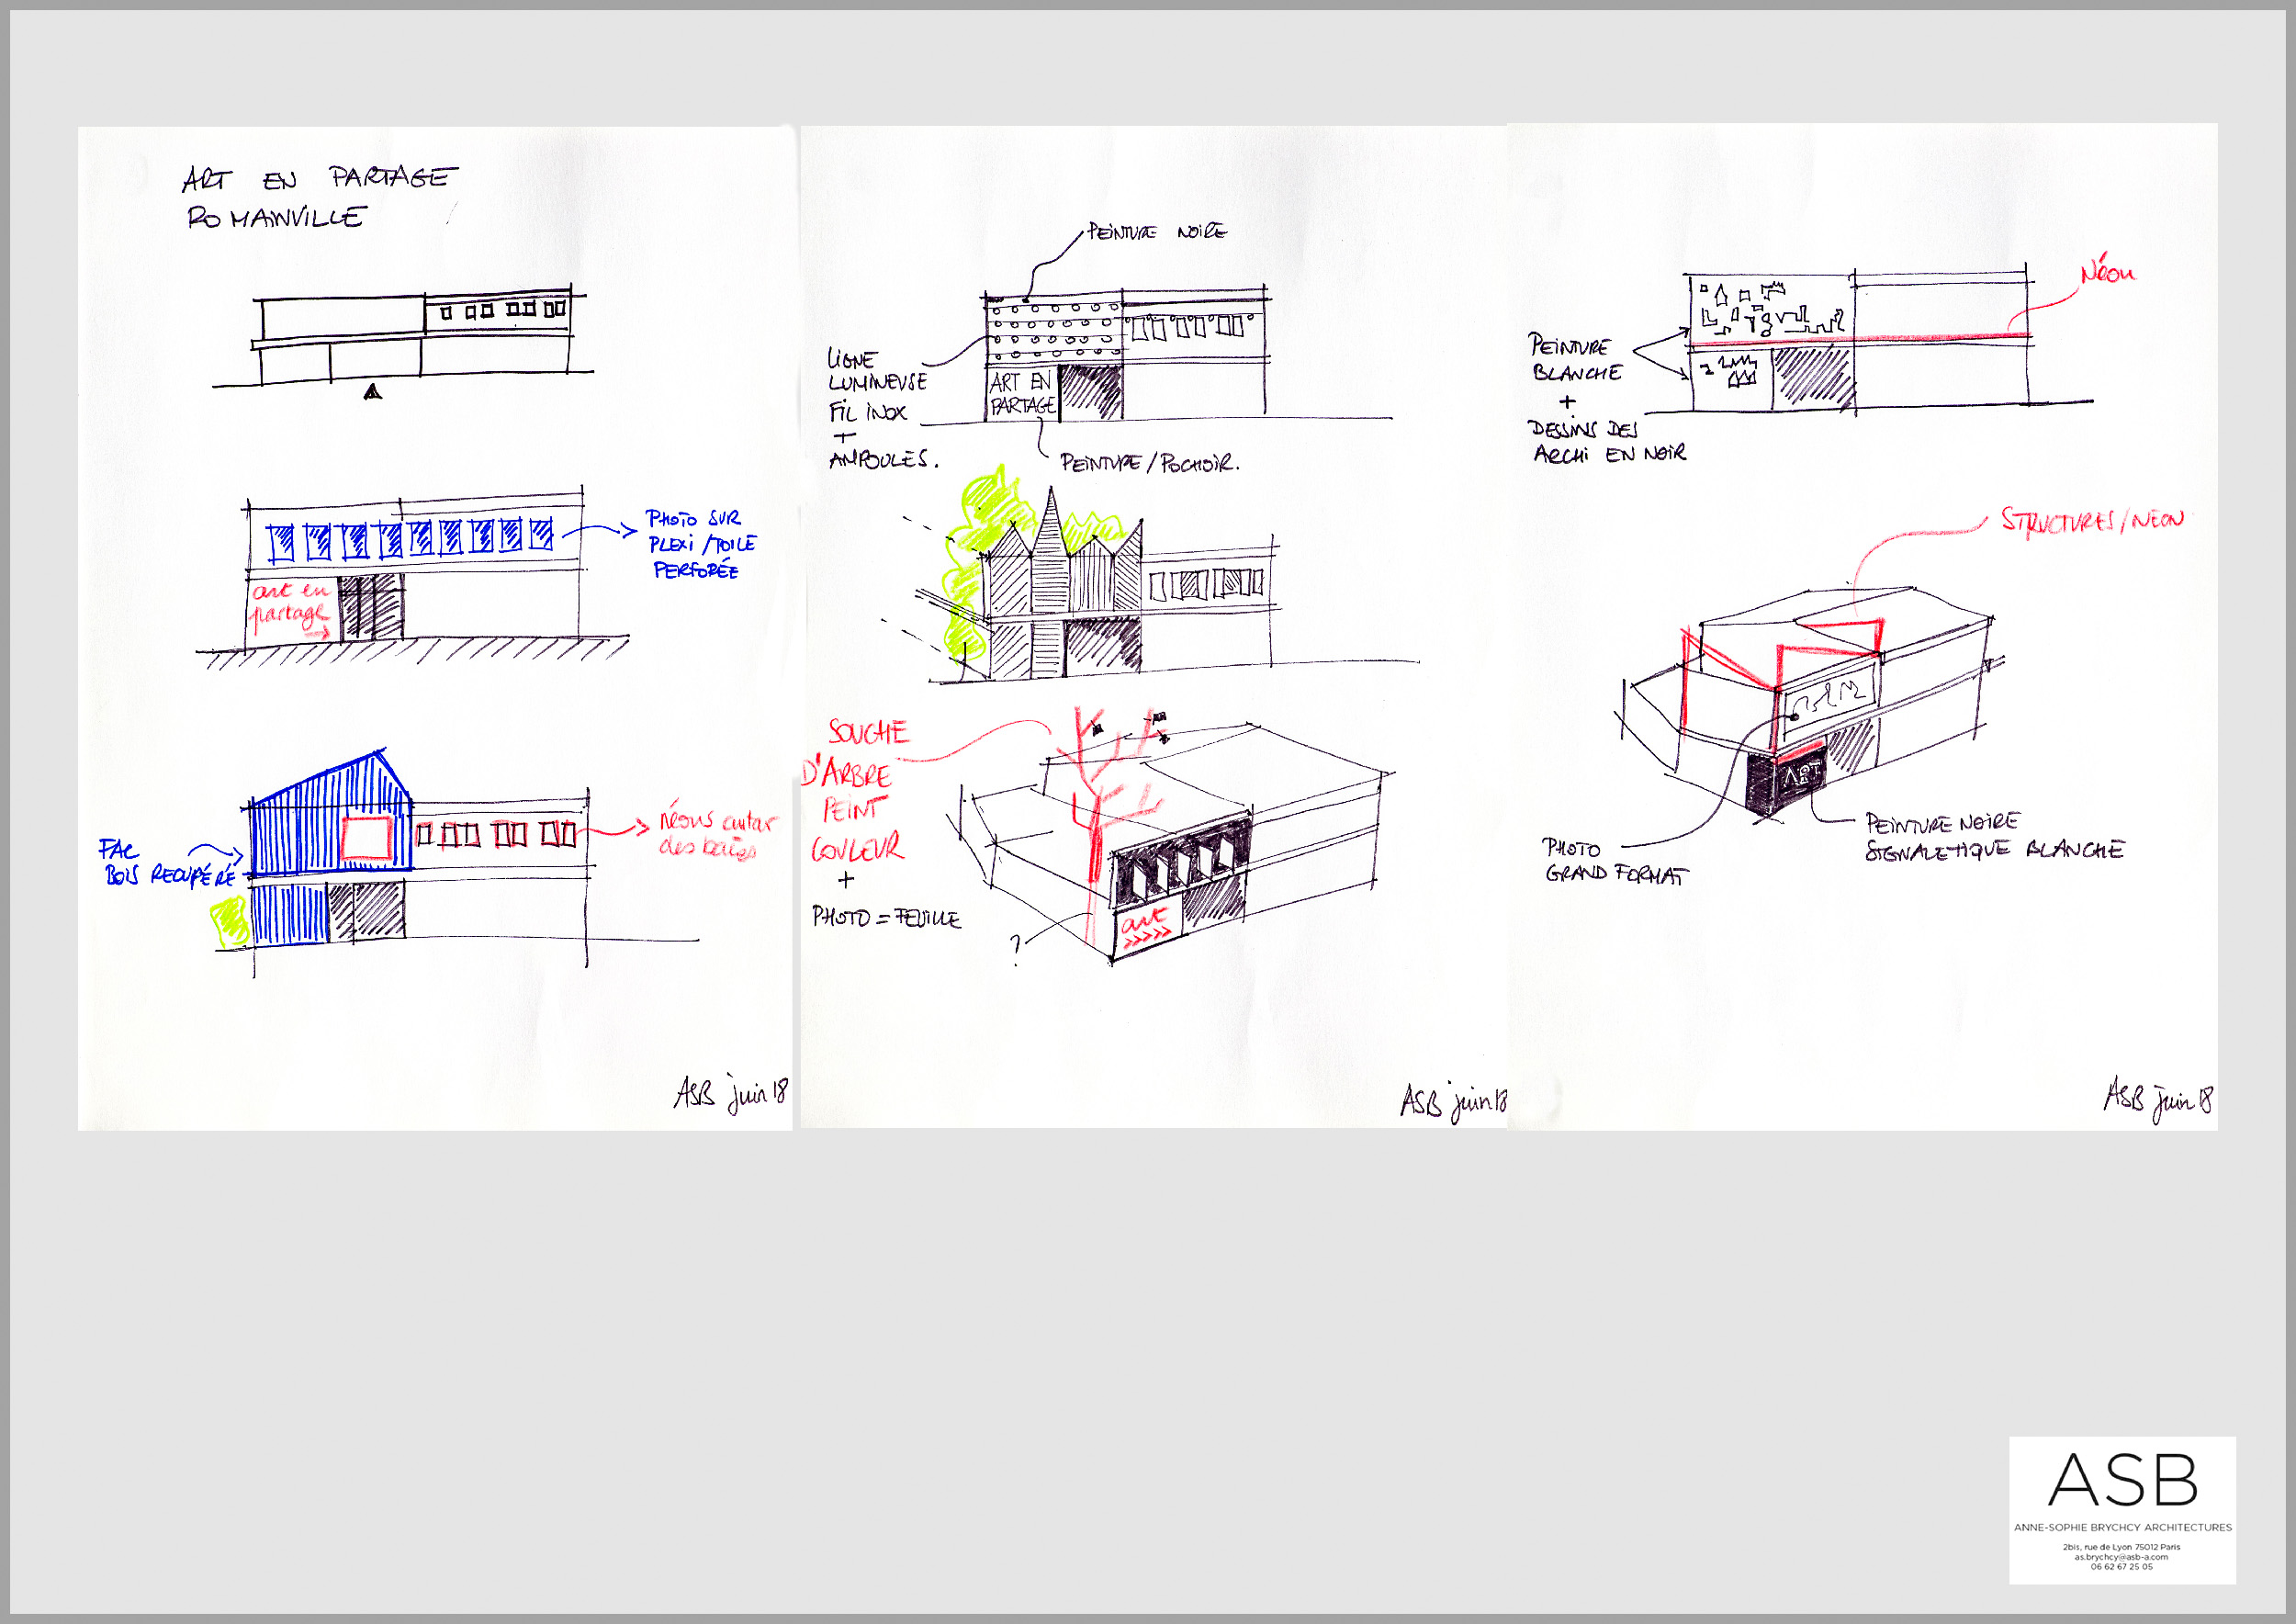 ART EN PARTAGE
ROMAINVILLE
PHOTO SUR
PLEXI / TOILE
PERFORÉE
art en
partage
FAC
BOIS RECUPÉRÉ
Néons autar
des baies
ASB juin 18
PEINTURE NOIRE
LIGNE
LUMINEUSE
FIL INOX
+
AMPOULES.
ART EN
PARTAGE
PEINTURE / POCHOIR.
SOUCHE
D'ARBRE
PEINT
COULEUR
+
PHOTO = FEUILLE
?
art
>>>>>
ASB juin 18
Néon
PEINTURE
BLANCHE
+
DESSINS DES
ARCHI EN NOIR
STRUCTURES / NEON
ART
PHOTO
GRAND FORMAT
PEINTURE NOIRE
SIGNALETIQUE BLANCHE
ASB juin 18
ASB
ANNE-SOPHIE BRYCHCY ARCHITECTURES
2bis, rue de Lyon 75012 Paris
as.brychcy@asb-a.com
06 62 67 25 05